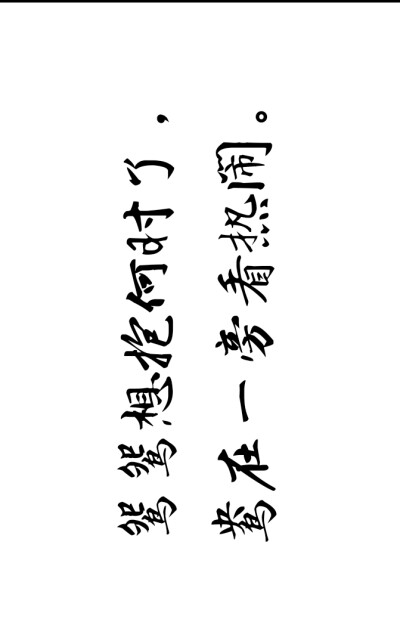 鸳鸳想抱何时了，
鸯在一旁看热闹。